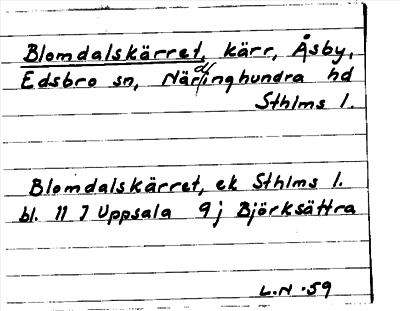 Blomdalskärret, kärr, Åsby,
Edsbro sn, Närdinghundra hd
Sthlms l.
Blomdalskärret, ek Sthlms l.
bl. 11 I Uppsala 9j Björksättra
L.N -59